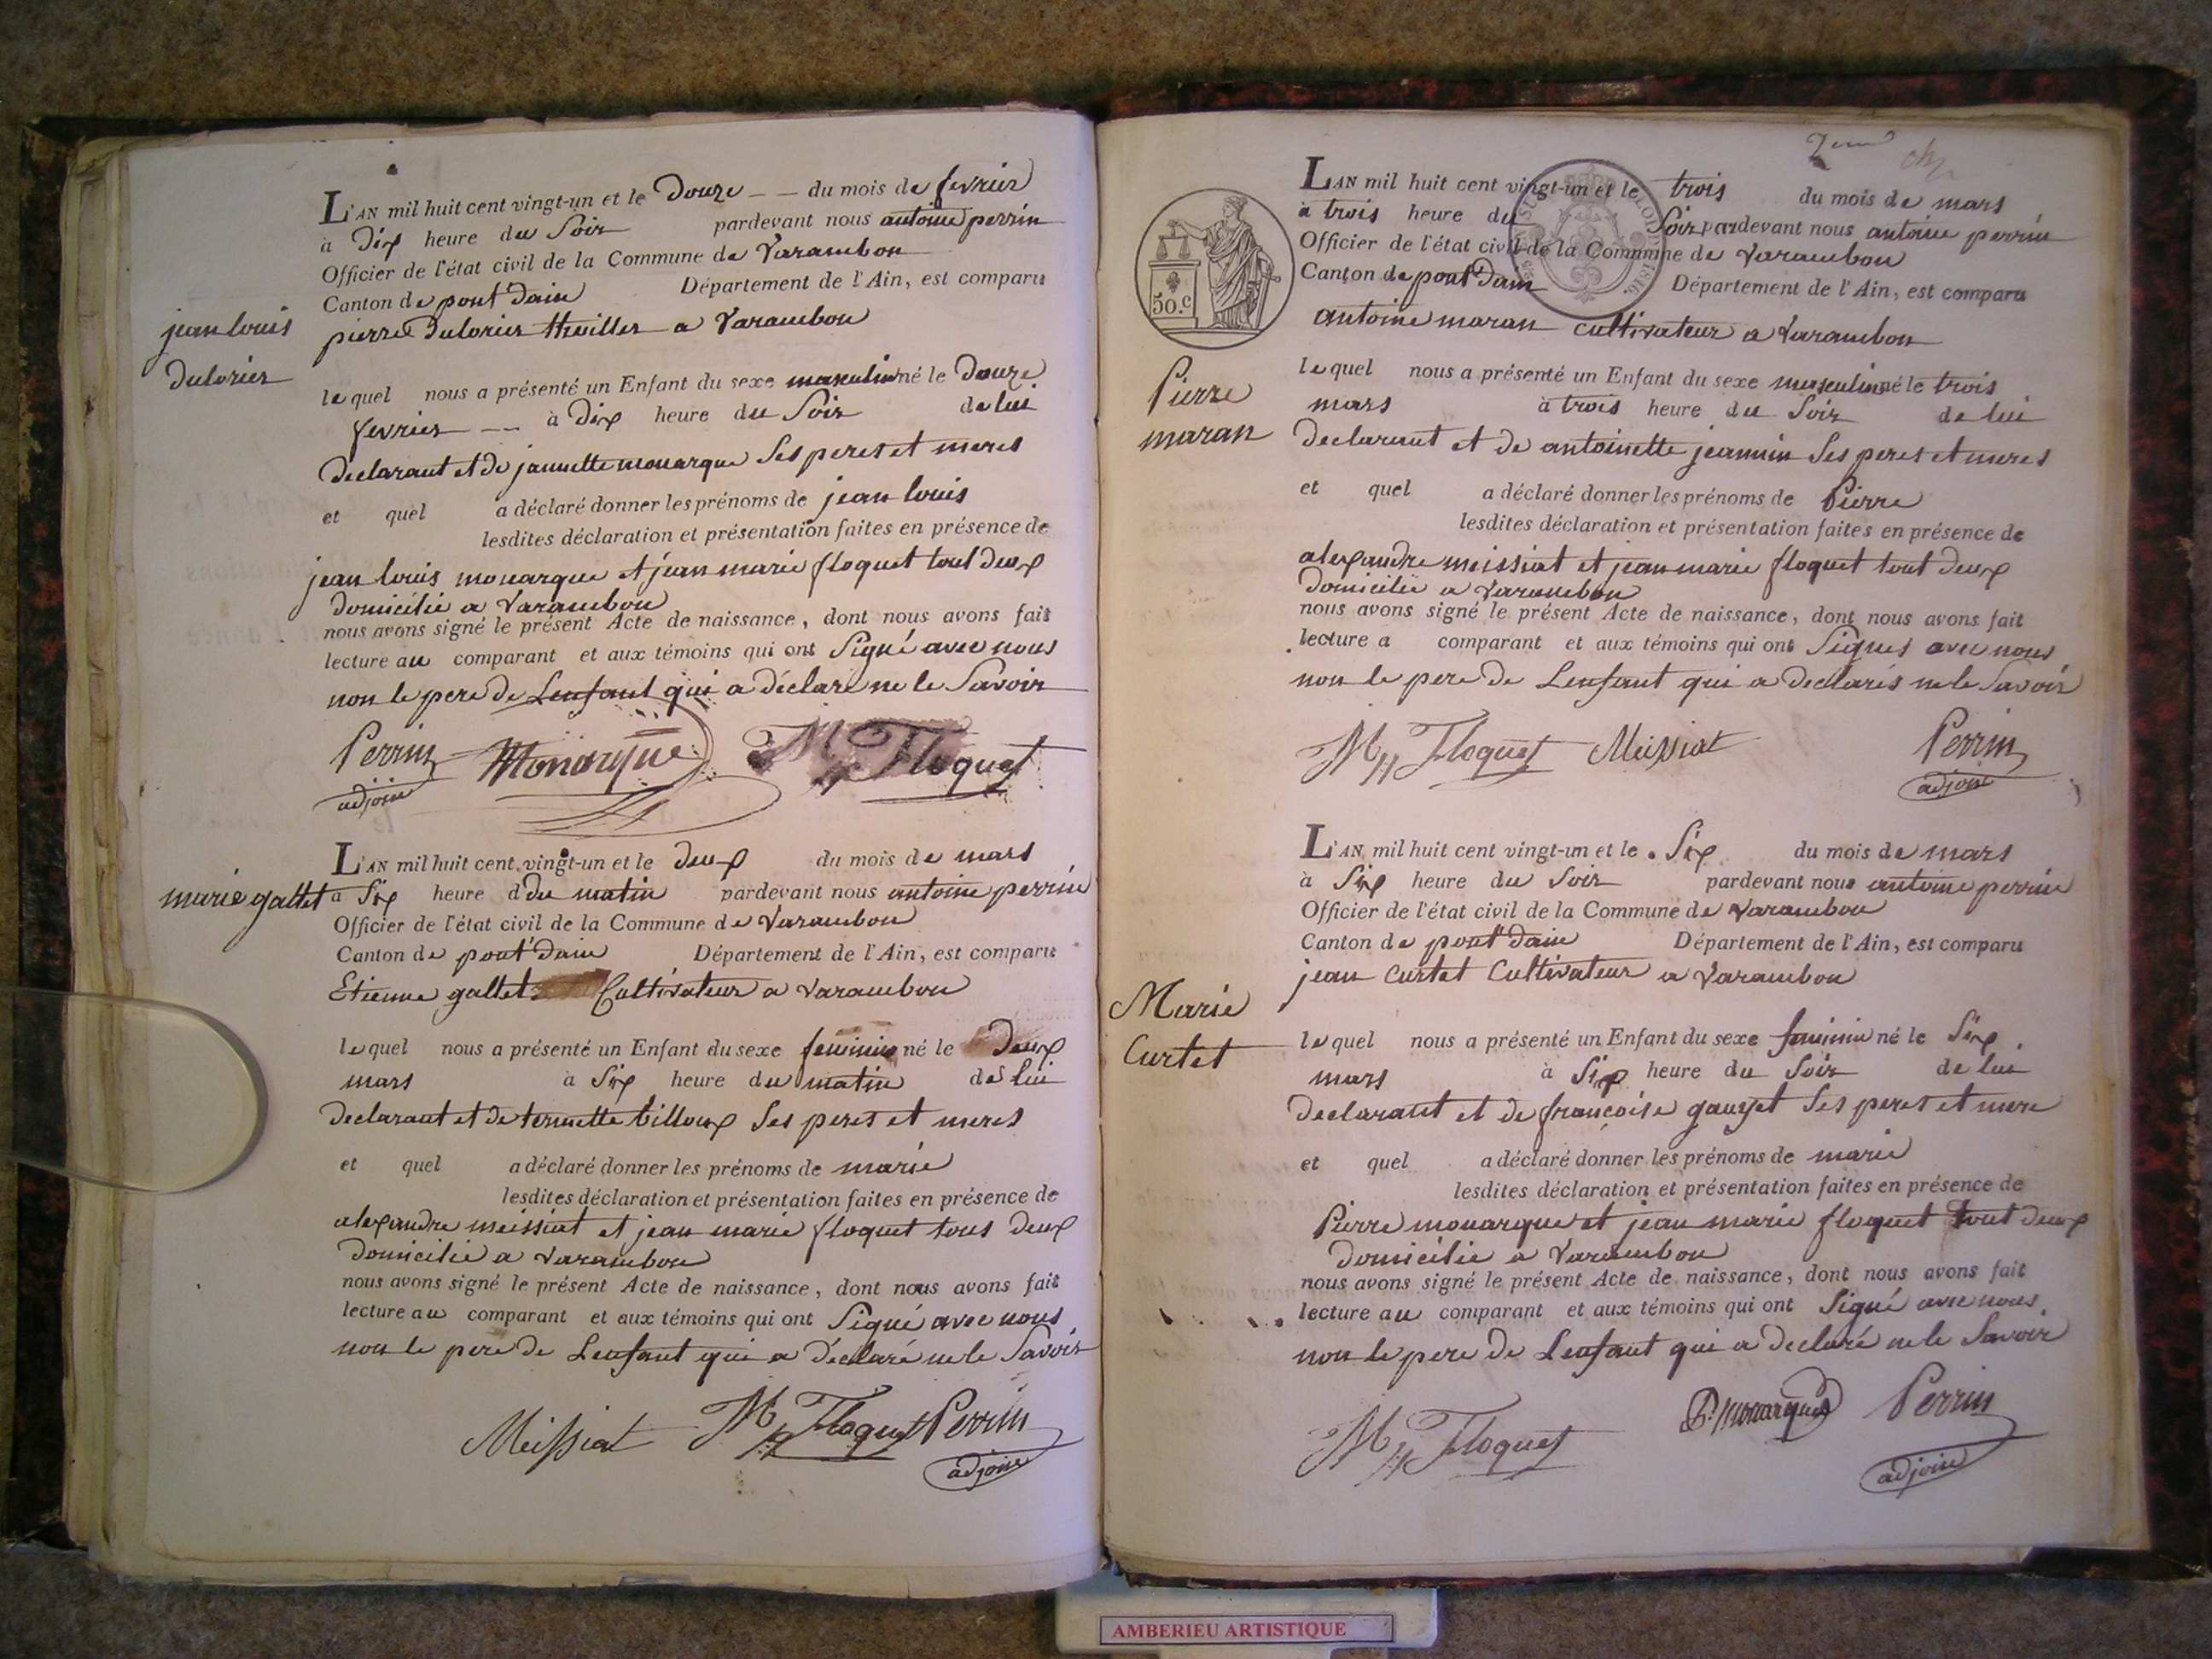 jean louis
dulorier
L'AN mil huit cent vingt-un et le Douze -- du mois de fevrier
à Dix heure du Soir pardevant nous antoine perrin
Officier de l'état civil de la Commune de Varambon
Canton de pont Dain Département de l'Ain, est comparu
pierre Dulorier a Varambon
lequel nous a présenté un Enfant du sexe masculin né le Douze
fevrier -- à Dix heure du Soir de lui
declarant et de jannette monarque Ses peres et meres
et quel a déclaré donner les prénoms de jean louis
lesdites déclaration et présentation faites en présence de
jean louis monarque et jean marie floquet tout deux
Domicilié a Varambon
nous avons signé le présent Acte de naissance, dont nous avons fait
lecture au comparant et aux témoins qui ont Signé avec nous
non le pere de Lenfant qui a déclaré ne le Savoir
Perrin Monarque M Floquet
adjoint
marie gallet
L'AN mil huit cent vingt-un et le deux du mois de mars
à Six heure d du matin pardevant nous antoine perrin
Officier de l'état civil de la Commune de Varambon
Canton de pont Dain Département de l'Ain, est comparu
Etienne gallet Cultivateur a Varambon
lequel nous a présenté un Enfant du sexe feminin né le Deux
mars à Six heure du matin de lui
declarant et de billoux Ses peres et meres
et quel a déclaré donner les prénoms de marie
lesdites déclaration et présentation faites en présence de
alexandre meissiat et jean marie floquet tous deux
Domicilié a Varambon
nous avons signé le présent Acte de naissance, dont nous avons fait
lecture au comparant et aux témoins qui ont Signé avec nous
non le pere de Lenfant qui a déclaré ne le Savoir
Meissiat M Floquet Perrin
adjoint
2eme
50.c
Pierre
maran
L'AN mil huit cent vingt-un et le trois du mois de mars
à trois heure du Soir pardevant nous antoine perrin
Officier de l'état civil de la Commune de Varambon
Canton de pont Dain Département de l'Ain, est comparu
antoine maran cultivateur a Varambon
lequel nous a présenté un Enfant du sexe masculin né le trois
mars à trois heure du Soir de lui
declarant et de antoinette jeannin Ses peres et meres
et quel a déclaré donner les prénoms de Pierre
lesdites déclaration et présentation faites en présence de
alexandre meissiat et jean marie floquet tout deux
Domicilié a Varambon
nous avons signé le présent Acte de naissance, dont nous avons fait
lecture a comparant et aux témoins qui ont Signes avec nous
non le pere de Lenfant qui a declarés ne le Savoir
M Floquet Meissiat Perrin
adjoint
Marie
Curtet
L'AN mil huit cent vingt-un et le Six du mois de mars
à Six heure du Soir pardevant nous antoine perrin
Officier de l'état civil de la Commune de Varambon
Canton de pont Dain Département de l'Ain, est comparu
jean Curtet Cultivateur a Varambon
lequel nous a présenté un Enfant du sexe feminin né le Six
mars à Six heure du Soir de lui
declarant et de françoise Ses peres et mere
et quel a déclaré donner les prénoms de marie
lesdites déclaration et présentation faites en présence de
Pierre monarque et jean marie floquet tout deux
Domicilié a Varambon
nous avons signé le présent Acte de naissance, dont nous avons fait
lecture au comparant et aux témoins qui ont Signé avec nous
non le pere de Lenfant qui a declaré ne le Savoir
M Floquet P. Monarque Perrin
adjoint
AMBERIEU ARTISTIQUE